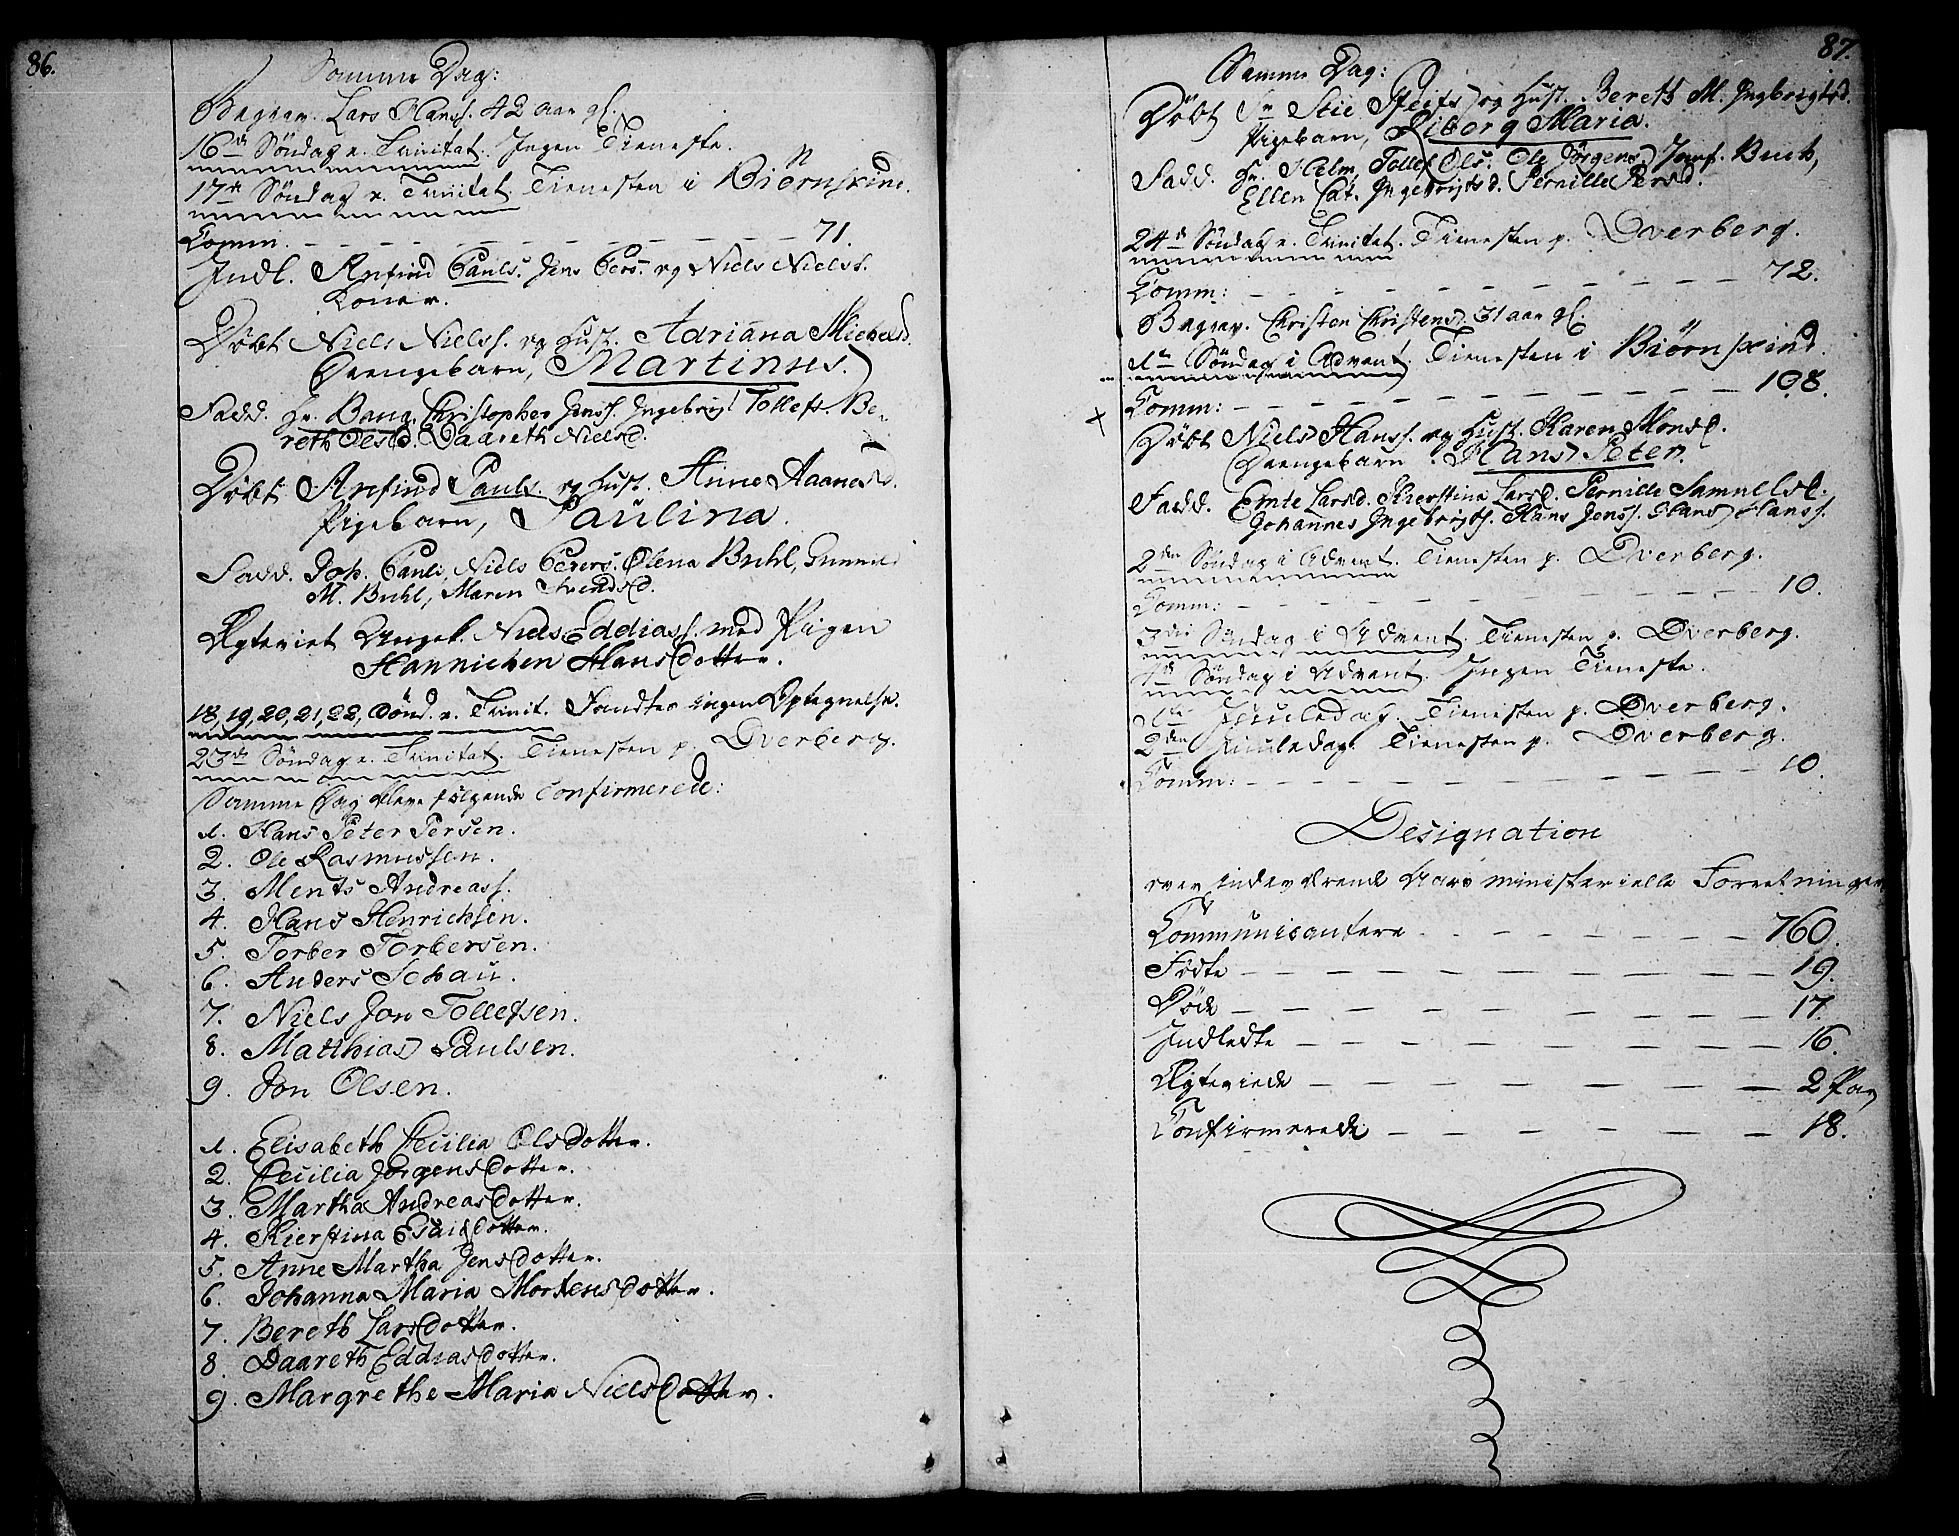 86.
Samme Dag:
Begrav. Lars Hanss. 42 aar gl.
16de Söndag e. Trinitat. Ingen Tieneste.
17de Söndag e. Trinitat. Tienesten i Biörnskind.
Comm. 71.
Indl. Anfind Pauls. Jens Pers. og Niels Nielss.
Koner.
Döbt Niels Nielss. og Hust. Adriana Michelsd.
Drengebarn, Martinus.
Fadd. Hr. Bang, Christopher Jenss. Ingebrigt Tollefs. Be-
reth Olsd. Daareth Nielsd.
Döbt Anfind Pauls. og Hust. Anne Haanesd.
Pigebarn, Paulina.
Fadd. Joh. Pauls, Niels Peders. Olena Buhl, Gunnild
M. Buhl, Maren Svendsd.
Ægteviet Ungk. Niels Eddiass. med Pigen
Hannichen Hansdotter.
18, 19, 20, 21, 22, Sönd. e. Trinit. Fandtes ingen Optegnelse.
23de Söndag e. Trinitat. Tienesten p. Dverberg.
Samme Dag bleve fölgende Confirmerede:
1. Hans Peter Persen.
2. Ole Rasmussen.
3. Ments Andreass.
4. Hans Henrichsen.
5. Torber Torbersen.
6. Anders Schau.
7. Niels Jon Tollefsen.
8. Matthias Paulsen.
9. Jon Olsen.
1. Elisabeth Cecilia Olsdotter.
2. Cecilia Jörgensdotter.
3. Martha Andreasdotter.
4. Kierstina Esaisdotter.
5. Anne Martha Jensdotter.
6. Johanna Maria Mortensdotter.
7. Bereth Larsdotter.
8. Daareth Eddiasdotter.
9. Margrethe Maria Nielsdotter.
87.
Samme Dag:
Döbt Sr. Stie Pfeiss og Hust. Bereth M. Ingbrigtsd.
Pigebarn, Liborg Maria.
Fadd. Hr. Holm, Tollef Ols. Ole Jörgens. Jomf. Buch,
Ellen Cat. Ingebrigtsd. Pernille Persd.
24de Söndag e. Trinitat. Tienesten p. Dverberg.
Comm: 72.
Begrav. Christen Christens. 31 aar gl.
1te Söndag i Advent. Tienesten i Biörnskind.
Comm: 108.
Döbt Niels Hanss. og Hust. Karen Monsd.
Drengebarn Hans Peter.
Fadd. Emte Larsd. Kierstina Larsd. Pernille Samuelsd.
Johannes Ingebrigts. Hans Jenss. Hans Hanss.
2den Söndag i Advent. Tienesten p. Dverberg.
Comm: 10.
3die Söndag i Advent. Tienesten p. Dverberg.
4de Söndag i Advent. Ingen Tieneste.
1te Juuledag. Tienesten p. Dverberg.
2den Juuledag. Tienesten p. Dverberg.
Comm: 10.
Designation
over indeværende Aars ministerielle Forretninger
Communicantere 760.
Födte 19.
Döde 17.
Indledte 16.
Ægteviede 2 Par
Confirmerede 18.